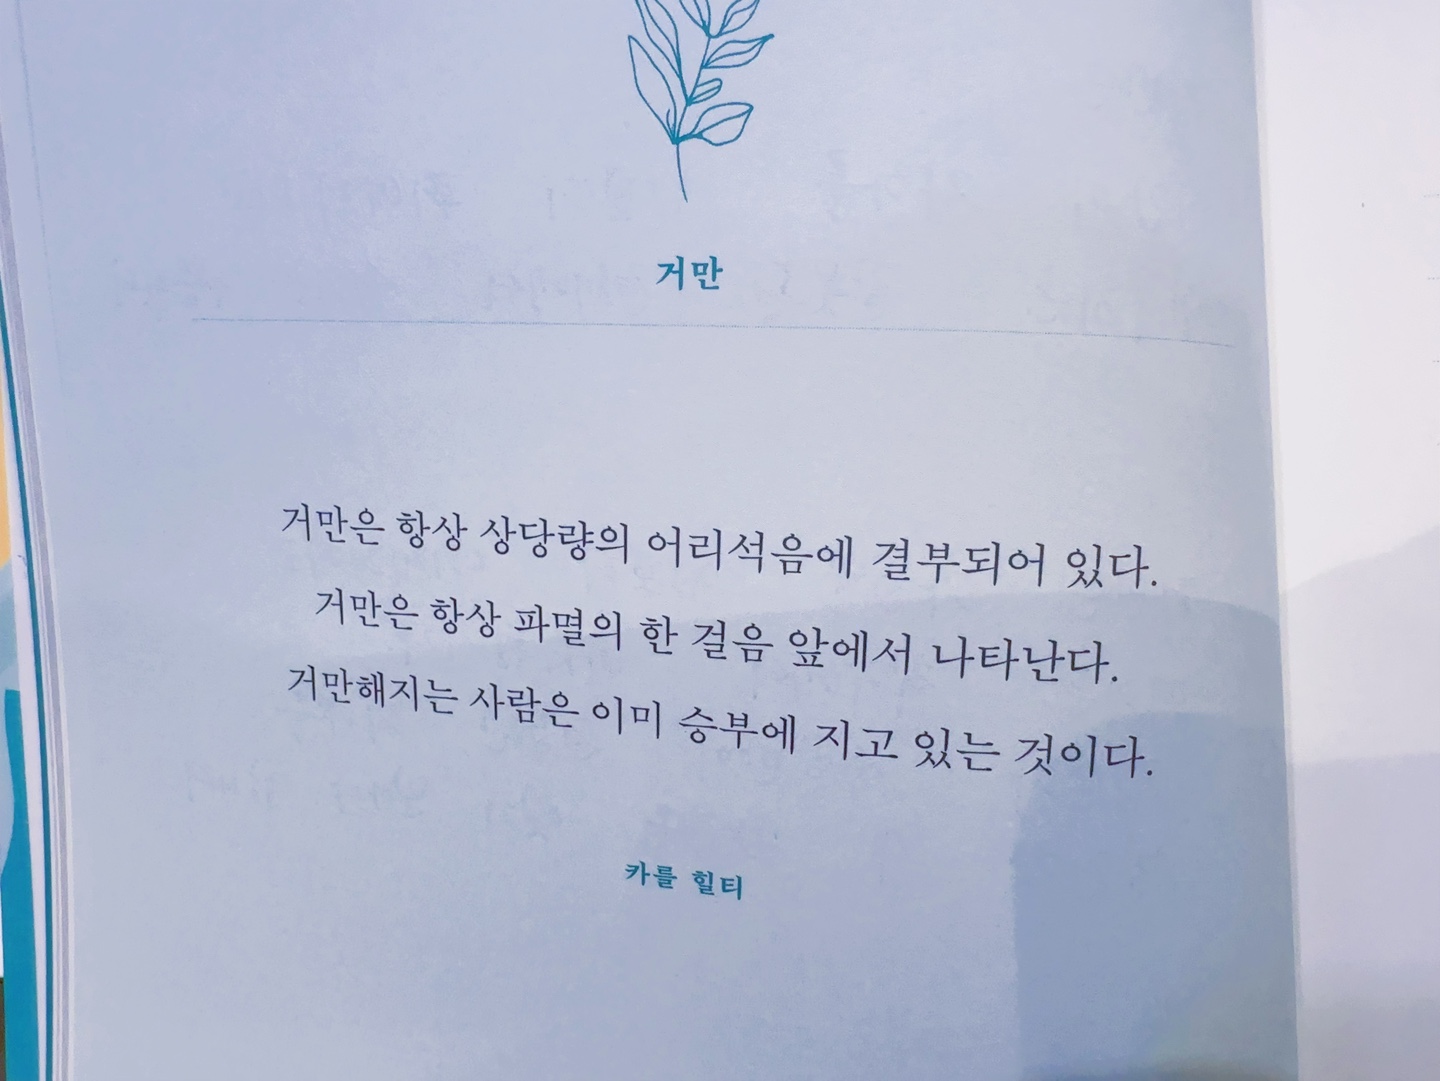 거만
거만은 항상 상당량의 어리석음에 결부되어 있다.
거만은 항상 파멸의 한 걸음 앞에서 나타난다.
거만해지는 사람은 이미 승부에 지고 있는 것이다.
카를 힐티